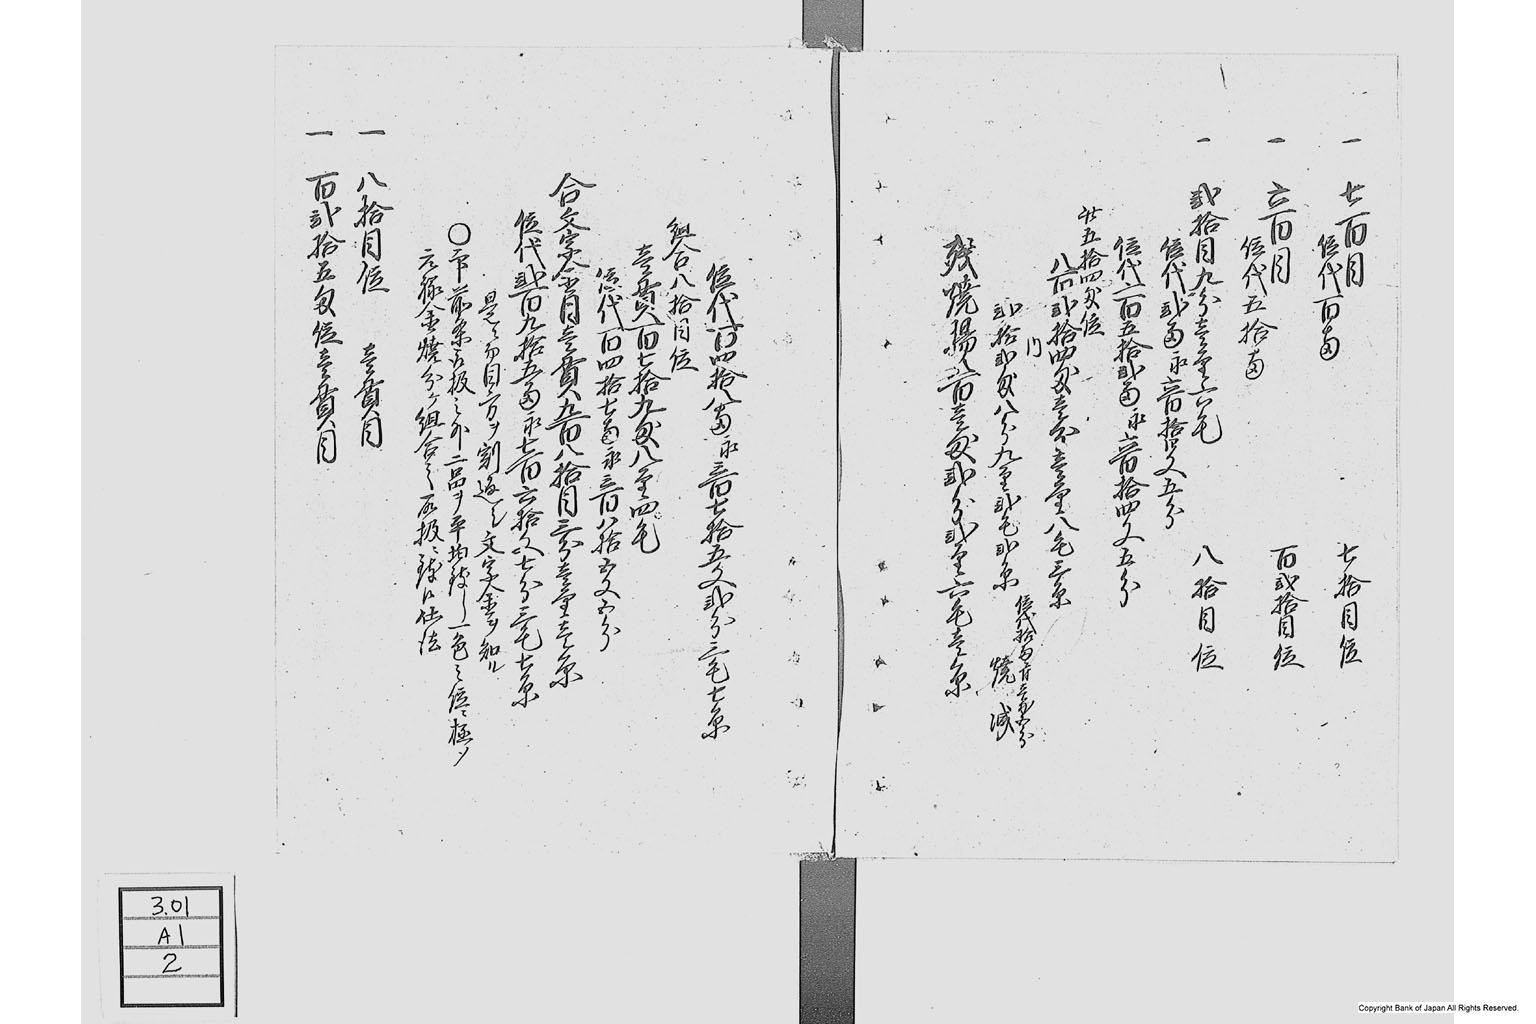 一 七百目 七拾目位
位代百両
一 六百目 百弐拾目位
位代五拾両
一 弐拾目九分壱厘六毛 八拾目位
位代弐両永六百拾四文五分
位代六百五拾弐両永六百拾四文五分
廿五拾四匁位
八百弐拾四匁壱分壱厘八毛三糸
内
弐拾弐匁八分九厘弐毛弐糸 焼減
残焼揚八百壱匁弐分弐厘六毛壱糸
位代百四拾八両永三百七拾五文弐分三毛七糸
組合八拾目位
壱貫百七拾九匁八厘四毛
位代百四拾七両永三百八拾五文五分
合文字金目壱貫九百八拾目三分壱厘壱糸
位代弐百九拾五両永七百六拾文七分三毛七糸
是ハ切目方ヲ割返シ文字金ヲ知ル
〇一 前条取扱之外二品ヲ平均致シ一色之位ニ極メ
元禄金焼分ケ組合之取扱ニ致候仕法
一 八拾目位 壱貫目
一 百弐拾五匁位壱貫目
3.01
A1
2
Copyright Bank of Japan All Rights Reserved.